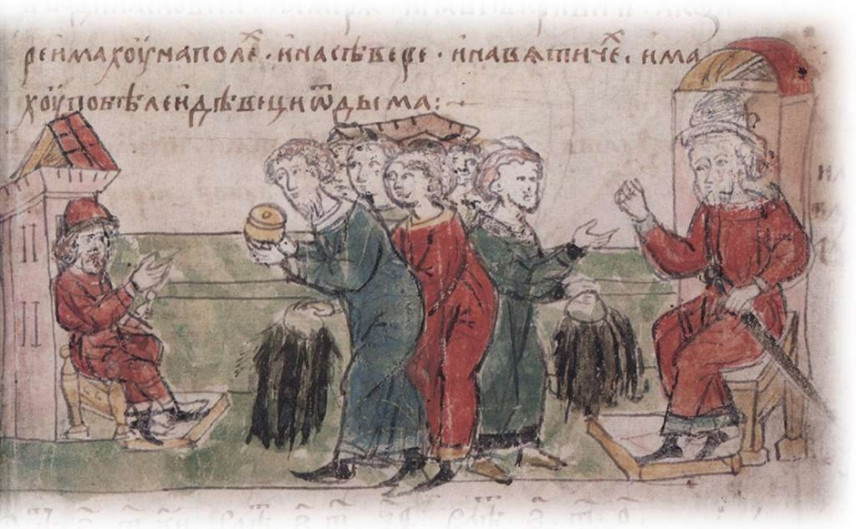 реимахоунаполеⷯ · инасѣвере · инавѧтичеⷯ · има
хоупобѣлеидѣвециѿдыма: